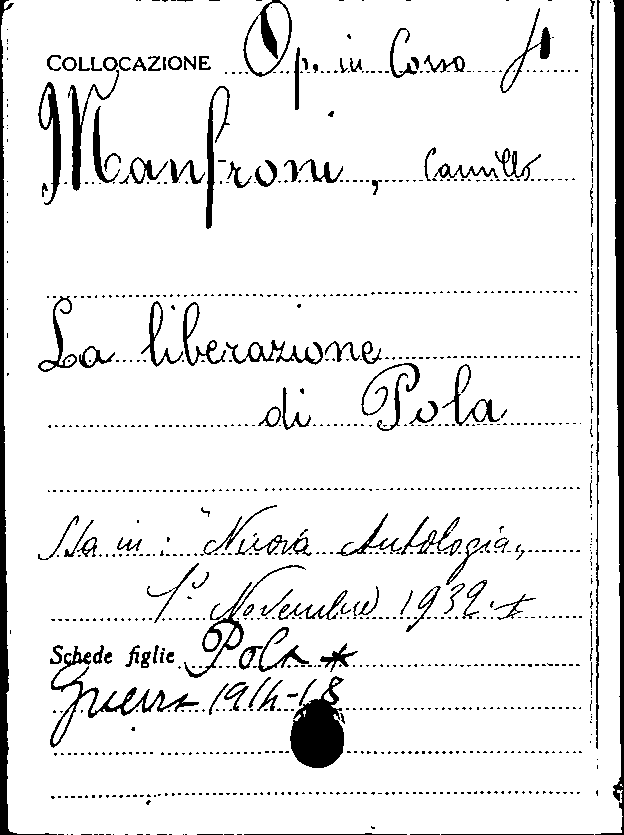 COLLOCAZIONE Op. in Corso
Manfroni, Camillo
La liberazione
di Pola
Sta in: "Nuova Antologia„
1° Novembre 1932.
Schede figlie Pola *
Guerra 1914-18